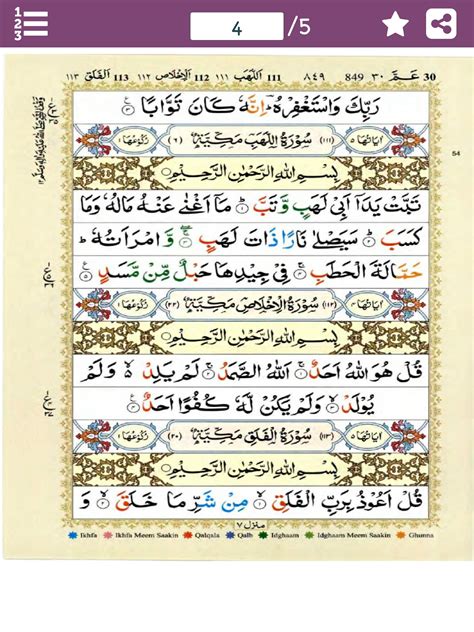 4 /5
30 عـم ٣٠ 849 ٨٤٩ 111 اللهب ١١١ 112 الإخلاص ١١٢ 113 الفلق ١١٣
رَبِّكَ وَاسْتَغْفِرْهُ ؕ اِنَّهٗ كَانَ تَوَّابًا ۟ ٣
54
اٰيَاتُهَا ٥ (١١١) سُوْرَةُ اللَّهَبِ مَكِّيَّةٌ (٦) رُكُوْعُهَا ١
بِسْمِ اللهِ الرَّحْمٰنِ الرَّحِيْمِ
تَبَّتْ يَدَاۤ اَبِيْ لَهَبٍ وَّتَبَّ ؕ ١ مَاۤ اَغْنٰى عَنْهُ مَالُهٗ وَمَا
كَسَبَ ؕ ٢ سَيَصْلٰى نَارًا ذَاتَ لَهَبٍ ۚۖ ٣ وَّامْرَاَتُهٗ ؕ
حَمَّالَةَ الْحَطَبِ ۚ ٤ فِيْ جِيْدِهَا حَبْلٌ مِّنْ مَّسَدٍ ٥
اٰيَاتُهَا ٤ (١١٢) سُوْرَةُ الْاِخْلَاصِ مَكِّيَّةٌ (٢٢) رُكُوْعُهَا ١
بِسْمِ اللهِ الرَّحْمٰنِ الرَّحِيْمِ
قُلْ هُوَ اللهُ اَحَدٌ ۚ ١ اَللهُ الصَّمَدُ ۚ ٢ لَمْ يَلِدْ ۙ۬ وَلَمْ
يُوْلَدْ ۙ ٣ وَلَمْ يَكُنْ لَّهٗ كُفُوًا اَحَدٌ ٤
اٰيَاتُهَا ٥ (١١٣) سُوْرَةُ الْفَلَقِ مَكِّيَّةٌ (٢٠) رُكُوْعُهَا ١
بِسْمِ اللهِ الرَّحْمٰنِ الرَّحِيْمِ
قُلْ اَعُوْذُ بِرَبِّ الْفَلَقِ ۙ ١ مِنْ شَرِّ مَا خَلَقَ ۙ ٢ وَ
منزل ٧
Ikhfa Ikhfa Meem Saakin Qalqala Qalb Idghaam Idghaam Meem Saakin Ghunna